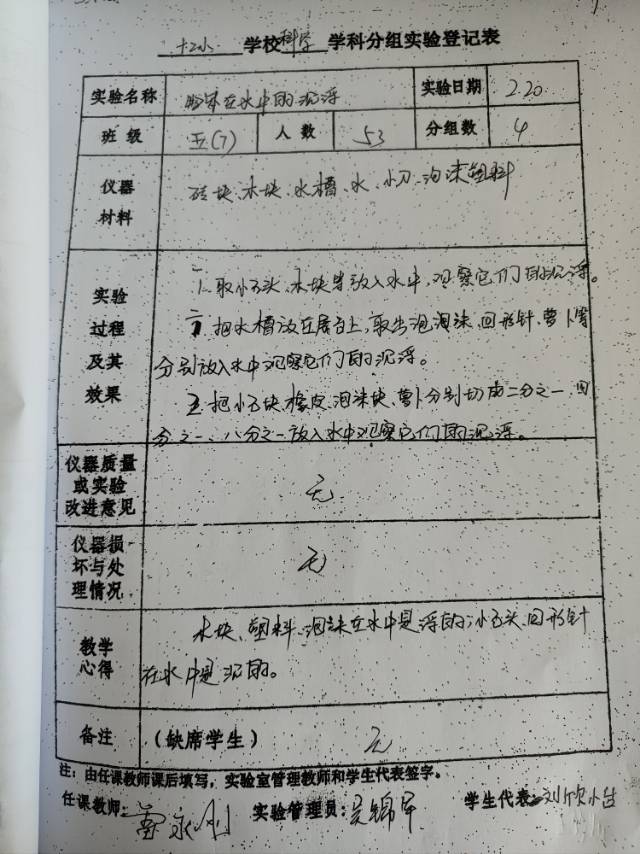 学校 科学 学科分组实验登记表
实验名称 物体在水中的沉浮 实验日期 2.20
班级 五(7) 人数 53 分组数 4
仪器 砖块、木块、水槽、水、小刀、泡沫塑料
材料
实验 一、取小石头、木块等放入水中,观察它们的沉浮。
过程 二、把水槽放在展台上,取出泡泡沫、回形针、萝卜等
及其 分别放入水中观察它们的沉浮。
效果 三、把小石块、橡皮、泡沫块、萝卜分别切成二分之一、四
分之一、八分之一放入水中观察它们的沉浮。
仪器质量
或实验 无
改进意见
仪器损
坏与处 无
理情况
教学 木块、塑料、泡沫在水中是浮的;小石头、回形针
心得 在水中是沉的。
备注 (缺席学生) 无
注:由任课教师课后填写,实验室管理教师和学生代表签字。
任课教师: 永刚 实验管理员:吴锦军 学生代表:刘欣